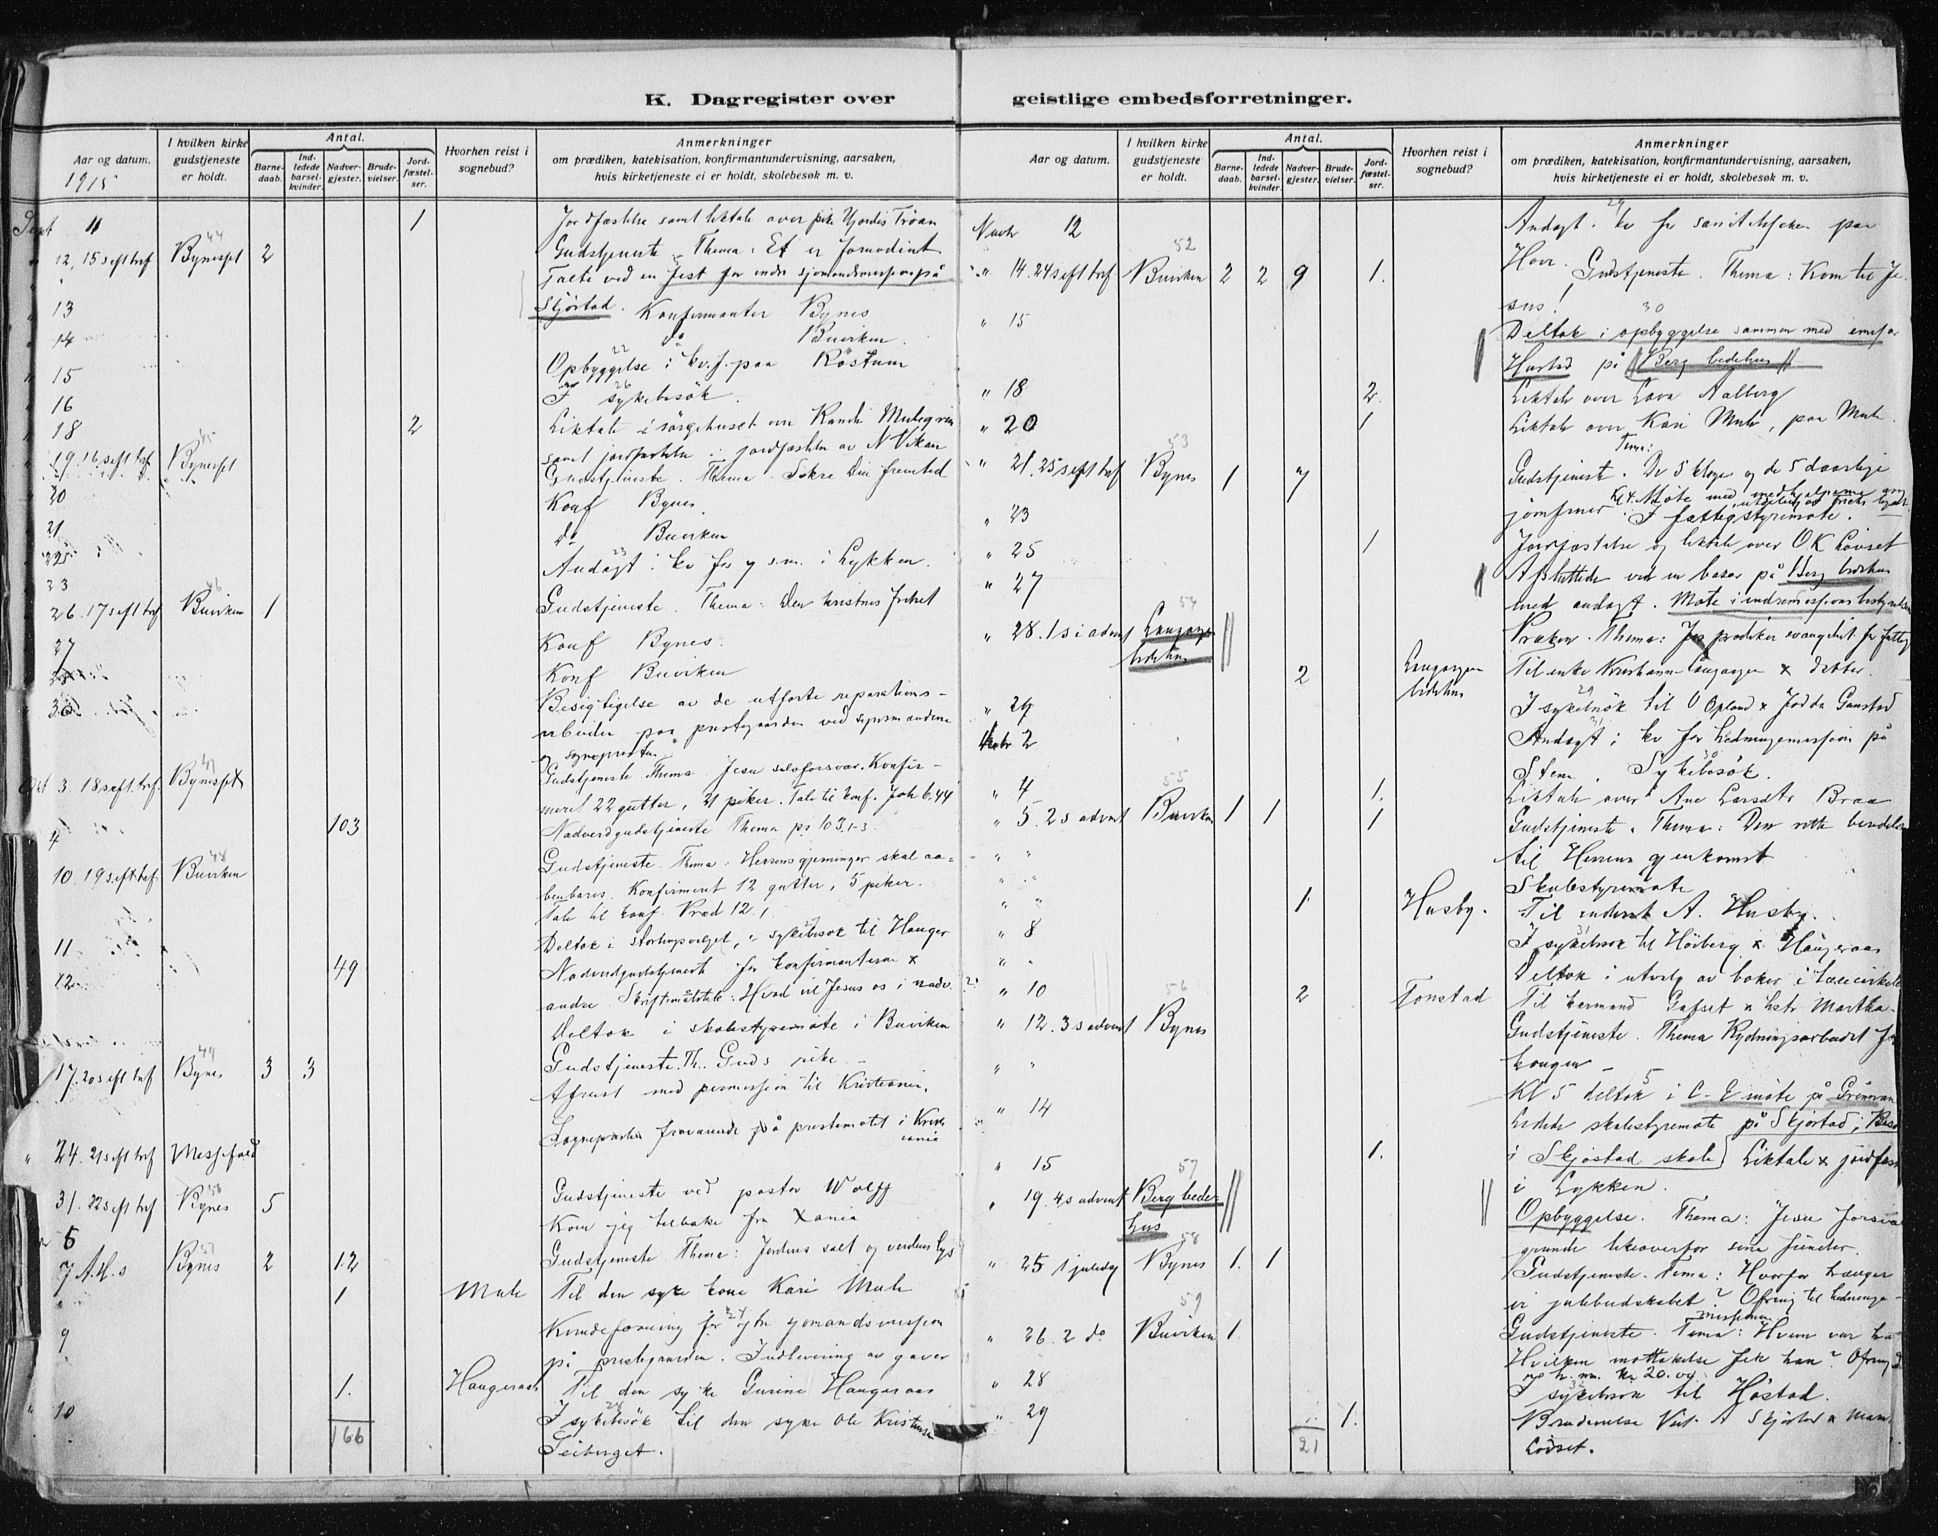 K. Dagregister over
Aar og datum.
1915
I hvilken kirke
gudstjeneste
er holdt.
Antal.
Barne-
daab.
Ind-
ledede
barsel-
kvinder.
Nadver-
gjester.
Brude-
vielser.
Jord-
fæstel-
ser.
Hvorhen reist i
sognebud?
Anmerkninger
om prædiken, katekisation, konfirmantundervisning, aarsaken,
hvis kirketjeneste ei er holdt, skolebesøk m. v.
Sept 11 1 Jordfæstelse samt liktale over pike Hjørdis Trøan
44
" 12, 15 s eft tref Bynes 2 Gudstjeneste. Thema: Et er fornødint
Talte ved en fest for indre sjømandsmisjon på
" 13 Skjøstad. Konfirmanter Bynes
" 14 do Buviken
" 15 Opbyggelse i kv. f. paa Røstum
" 16 I sykebesøk
" 18 2 Liktale i sørgehuset over Randi
samt jordfæstelse jordfæstelse av N Vikan
45
" 19. 16 s eft tref Gudstjeneste. Thema. Sikre Din fremtid
20 Konf Bynes.
21 do Buviken
22
23 Andagt i kv for y s.m. i Lykken.
46
26. 17 s eft tref Buviken 1 Gudstjeneste. Thema: Den kristnes frihet
27 Konf Bynes.
Konf Buviken
30 Besigtigelse av de utførte reparations-
arbeider paa prestegaarden ved synsmændene
og sognepresten
47
Okt 3. 18 s eft. tref. Gudstjeneste Thema Jesu selvforsvar. Konfir-
meret 22 gutter, 21 piker. Tale til konf. Joh 6.44
4 103 Nadverdgudstjeneste Thema ps 103.1-3.
48
10. 19 s eft tref Buviken Gudstjeneste. Thema: Herrens gjerninger skal aa-
benbares. Konfirmeret 12 gutter, 5 piker.
Tale til konf. Præd 12.1.
11 Deltok i stortingsvalget, i sykebesøk til Hanger
12 49 Nadverdgudstjeneste for konfirmanterne x
andre. Skriftmålstale: Hvad vil Jesus os i nadv.
Deltok i skolestyremøte i Buviken
49
17. 20 s eft tref Bynes 3 3 Gudstjeneste. Th. Guds rike
Afreist med permission til Kristiania.
Sognepresten fraværende på prestemøte i Kristi
ania
" 24. 21 s eft tref Messefald
50
31. 22 s eft tref Bynes 5 Gudstjeneste ved pastor Wolff
6 Kom jeg tilbake fra Xania
51
7 A.H.s Bynes 2 12 Gudstjeneste Thema: Jordens salt og verdens lys
" 1 Mule Til den syke kone Kari Mule
9 Kvindeforening for ytre sjømandsmission
på prestegaarden. Indlevering av gaver
1. Haugeraas Til den syke Gurine Haugeraas
" 10 I sykebesøk til den syke Ole Kristensen
166 Teiberget.
geistlige embedsforretninger.
Aar og datum.
I hvilken kirke
gudstjeneste
er holdt.
Antal.
Barne-
daab.
Ind-
ledede
barsel-
kvinder.
Nadver-
gjester.
Brude-
vielser.
Jord-
fæstel-
ser.
Hvorhen reist i
sognebud?
Anmerkninger
om prædiken, katekisation, konfirmantundervisning, aarsaken,
hvis kirketjeneste ei er holdt, skolebesøk m. v.
29
Novb 12 Andagt. kv for sanitetsforen paa
Hove.
52
" 14. 24 s eft tref Buviken 2 2 9 1. Gudstjeneste. Thema: Kom til Je-
sus!
30
" 15 Deltok i opbyggelse sammen med emisær
Hustad på Berg bedehus
" 18 2. Liktale over Aalberg
" 20 1 Liktale over Kari Mule, paa Mule.
53
Tema:
" 21. 25 s eft tref Bynes 1 7 Gudstjenest. De 5 kloge og de 5 daarlige
jomfruer. Kl 4. Møte med medhjelperne
" 23 I fattigstyremøte.
" 25 1 Jordfæstelse og liktale over O K Lovset
" 27 Afsluttede ved en basar på Berg bedehus
med andagt. Møte i indremissionsbestyrelsen
54
" 28. 1 s i advent Langørgen
bedehus Præken. Thema: Jeg prædiker evangeliet for fattig
2 Langørgen
bedehus Til enke Langørgen x datter.
" 29 I sykebesøk til O Opland x Jødda Gaustad
Decbr 2 Andagt i kv for hedningemissjon på
Stene. Sykebesøk.
" 4 1. Liktale over Ane Larsdtr Braa
55
" 5. 2 s advent Buviken 1 1 1 Gudstjeneste. Thema: Den rette beredelse
til Herrens gjenkomst
" " Skolestyremøte
" " 1. Husby. Til inderst A. Husby.
" 8 I sykebesøk til Høiberg x Haugeraas
" " Deltok i utvalg av bøker i læsecirkelen
" 10 2 Tonstad Til kårmand Gafset x hstr Martha.
56
" 12. 3 s advent Bynes Gudstjeneste. Thema Rydningsarbeidet for
kongen
" " Kl 5 deltok i C-E møte på Grønran
" 14 Ledede skolestyremøte på Skjøstad,
" 15 1. i Skjøstad skole Liktale x jordfæst
i Lykken.
57
" 19. 4 s advent Berg bede-
hus Opbyggelse. Thema: Jesu forsvars
grunde likeoverfor sine fiender.
58
" 25 1 juledag Bynes 1. 1 Gudstjeneste. Tema: Hvorfor trænger
vi julebudskabet? Ofring til hedninge-
missionen
59
" 26. 2 do Buviken 1. Gudstjeneste. Tema: Hvem var han
Hvilken mottakelse fik han? Ofring
h. m. kr 20.09.
" 28 I sykebesøk til Høstad.
" 29 1. Brudevielse Skjøstad x
21 Lodset.